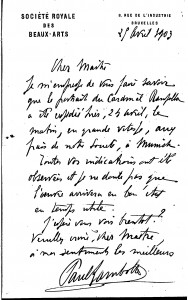 SOCIÉTÉ ROYALE
DES
BEAUX-ARTS
9, RUE DE L'INDUSTRIE
BRUXELLES
25 Avril 1903
Cher Maître
Je m'empresse de vous faire savoir
que le portrait du Cardinal Rampolla
a été expédié hier, 24 avril, le
matin, en grande vitesse, aux
frais de notre Société, à Munich.
Toutes vos indications ont été
observées et je ne doute pas que
l'œuvre arrivera en bon état
en temps utile.
J'espère vous voir bientôt.
Veuillez croire, cher Maître
à nos sentiments les meilleurs
Paul Lambotte